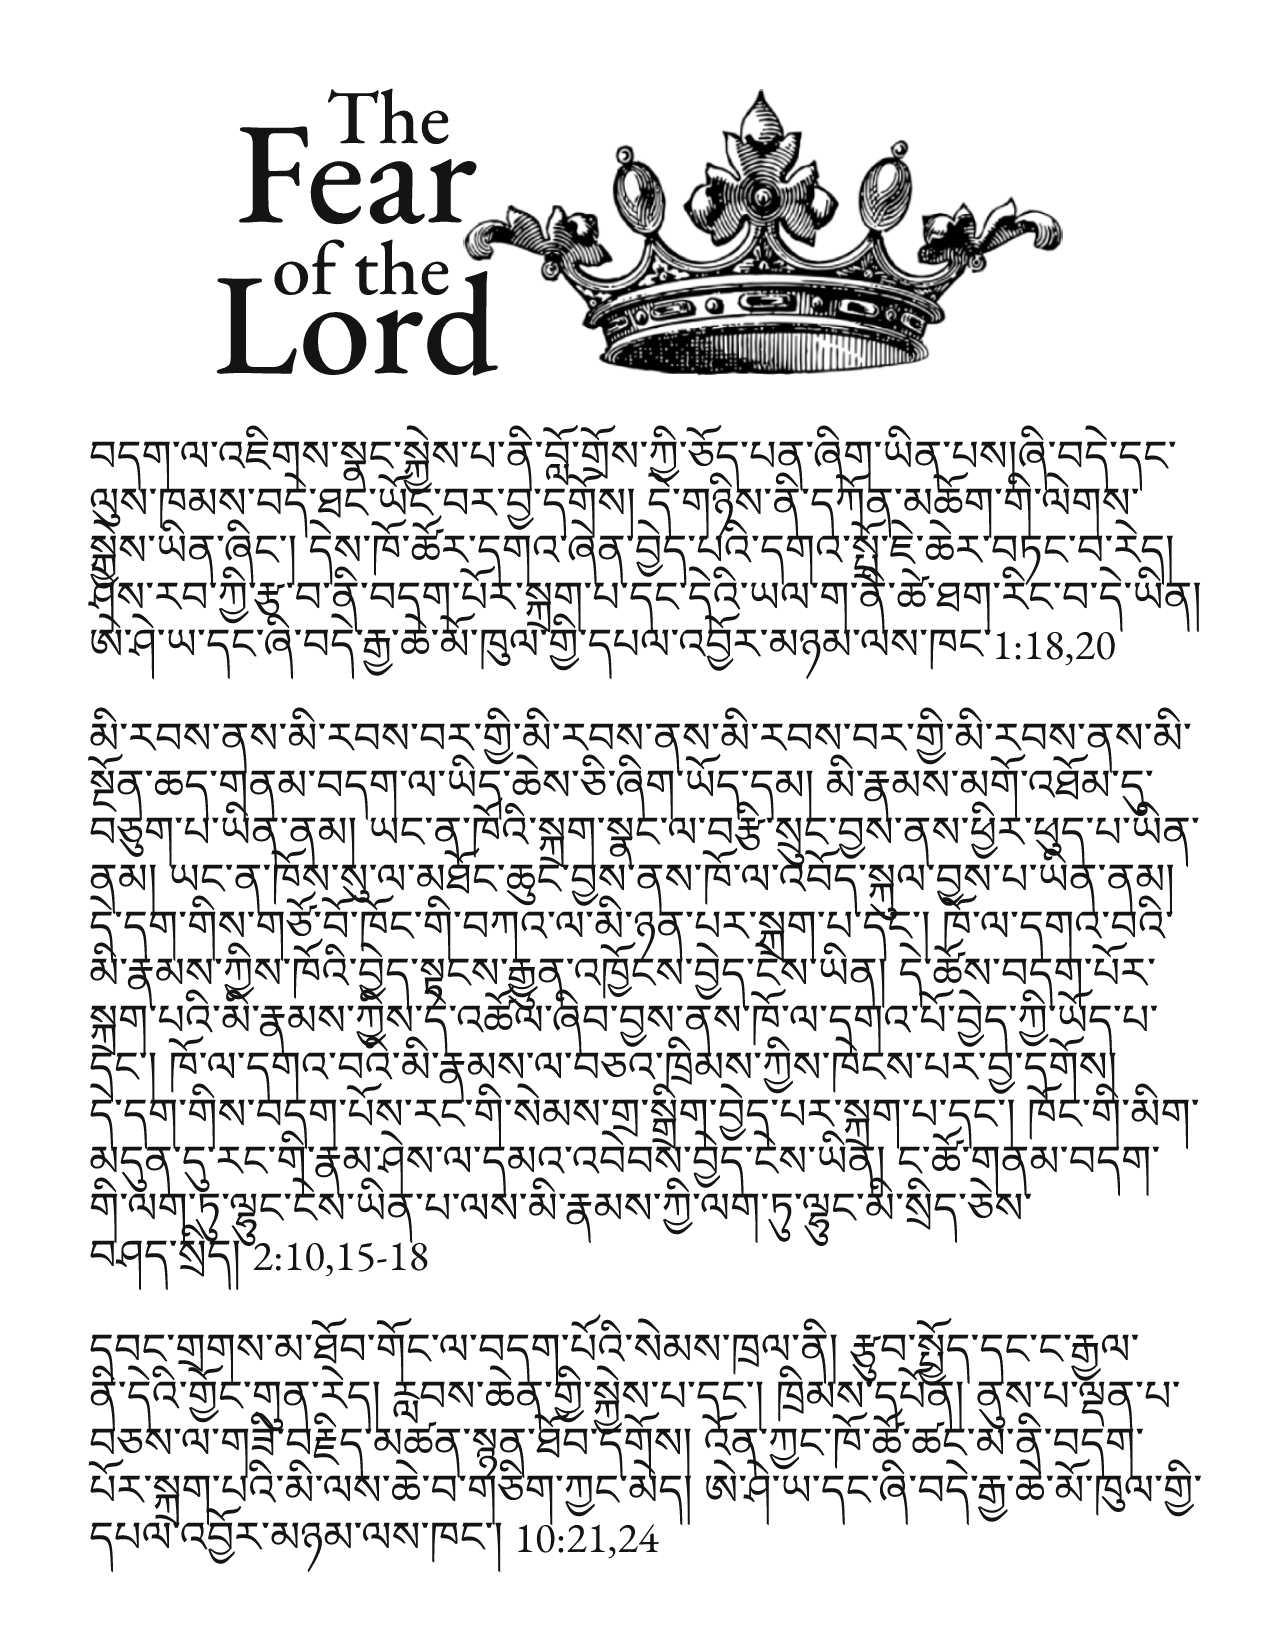 The
Fear
of the
Lord
བདག་ལ་འཇིགས་སྣང་སྐྱེས་པ་ནི་བློ་གྲོས་ཀྱི་ཅོད་པན་ཞིག་ཡིན་པས།ཞི་བདེ་དང་
ལུས་ཁམས་བདེ་ཐང་ཡོང་བར་བྱ་དགོས། དེ་གཉིས་ནི་དཀོན་མཆོག་གི་ལེགས་
སྐྱེས་ཡིན་ཞིང་། དེས་ཁོ་ཚོར་དགའ་ཞེན་བྱེད་པའི་དགའ་སྤྲོ་ཇེ་ཆེར་བཏང་བ་རེད།
ཤེས་རབ་ཀྱི་རྩ་བ་ནི་བདག་པོར་སྐྲག་པ་དང་དེའི་ཡལ་ག་ནི་ཚེ་ཐག་རིང་བ་དེ་ཡིན།
ཨེ་ཤེ་ཡ་དང་ཞི་བདེ་རྒྱ་ཆེ་མོ་ཁུལ་གྱི་དཔལ་འབྱོར་མཉམ་ལས་ཁང་1:18,20
མི་རབས་ནས་མི་རབས་བར་གྱི་མི་རབས་ནས་མི་རབས་བར་གྱི་མི་རབས་ནས་མི་
སྔོན་ཆད་གནམ་བདག་ལ་ཡིད་ཆེས་ཅི་ཞིག་ཡོད་དམ། མི་རྣམས་མགོ་འཐོམ་དུ་
བཅུག་པ་ཡིན་ནམ། ཡང་ན་ཁོའི་སྐྲག་སྣང་ལ་བརྩི་སྲུང་བྱས་ནས་ཕྱིར་ཕུད་པ་ཡིན་
ནམ། ཡང་ན་ཁོས་སུ་ལ་མཐོང་ཆུང་བྱས་ནས་ཁོ་ལ་འབོད་སྐུལ་བྱས་པ་ཡིན་ནམ།
དེ་དག་གིས་གཙོ་བོ་ཁོང་གི་བཀའ་ལ་མི་ཉན་པར་སྐྲག་པ་དང་། ཁོ་ལ་དགའ་བའི་
མི་རྣམས་ཀྱིས་ཁོའི་བྱེད་སྟངས་རྒྱུན་འཁྱོངས་བྱེད་ངེས་ཡིན། དེ་ཚོས་བདག་པོར་
སྐྲག་པའི་མི་རྣམས་ཀྱིས་དེ་འཚོལ་ཞིབ་བྱས་ནས་ཁོ་ལ་དགའ་པོ་བྱེད་ཀྱི་ཡོད་པ་
དང་། ཁོ་ལ་དགའ་བའི་མི་རྣམས་ལ་བཅའ་ཁྲིམས་ཀྱིས་ཁེངས་པར་བྱ་དགོས།
དེ་དག་གིས་བདག་པོས་རང་གི་སེམས་གྲ་སྒྲིག་བྱེད་པར་སྐྲག་པ་དང་། ཁོང་གི་མིག་
མདུན་དུ་རང་གི་རྣམ་ཤེས་ལ་དམའ་འབེབས་བྱེད་ངེས་ཡིན། ང་ཚོ་གནམ་བདག་
གི་ལག་ཏུ་ལྷུང་ངེས་ཡིན་པ་ལས་མི་རྣམས་ཀྱི་ལག་ཏུ་ལྷུང་མི་སྲིད་ཅེས་
བཤད་སྲིད། 2:10,15-18
དབང་གྲགས་མ་ཐོབ་གོང་ལ་བདག་པོའི་སེམས་ཁྲལ་ནི། རྩུབ་སྤྱོད་དང་ང་རྒྱལ་
ནི་དེའི་གྱོང་གུན་རེད། རླབས་ཆེན་གྱི་སྐྱེས་པ་དང་། ཁྲིམས་དཔོན། ནུས་པ་ལྡན་པ་
བཅས་ལ་གཟི་བརྗིད་མཚན་སྙན་ཐོབ་དགོས། འོན་ཀྱང་ཁོ་ཚོ་ཚང་མ་ནི་བདག་
པོར་སྐྲག་པའི་མི་ལས་ཆེ་བ་གཅིག་ཀྱང་མེད། ཨེ་ཤེ་ཡ་དང་ཞི་བདེ་རྒྱ་ཆེ་མོ་ཁུལ་གྱི་
དཔལ་འབྱོར་མཉམ་ལས་ཁང་། 10:21,24